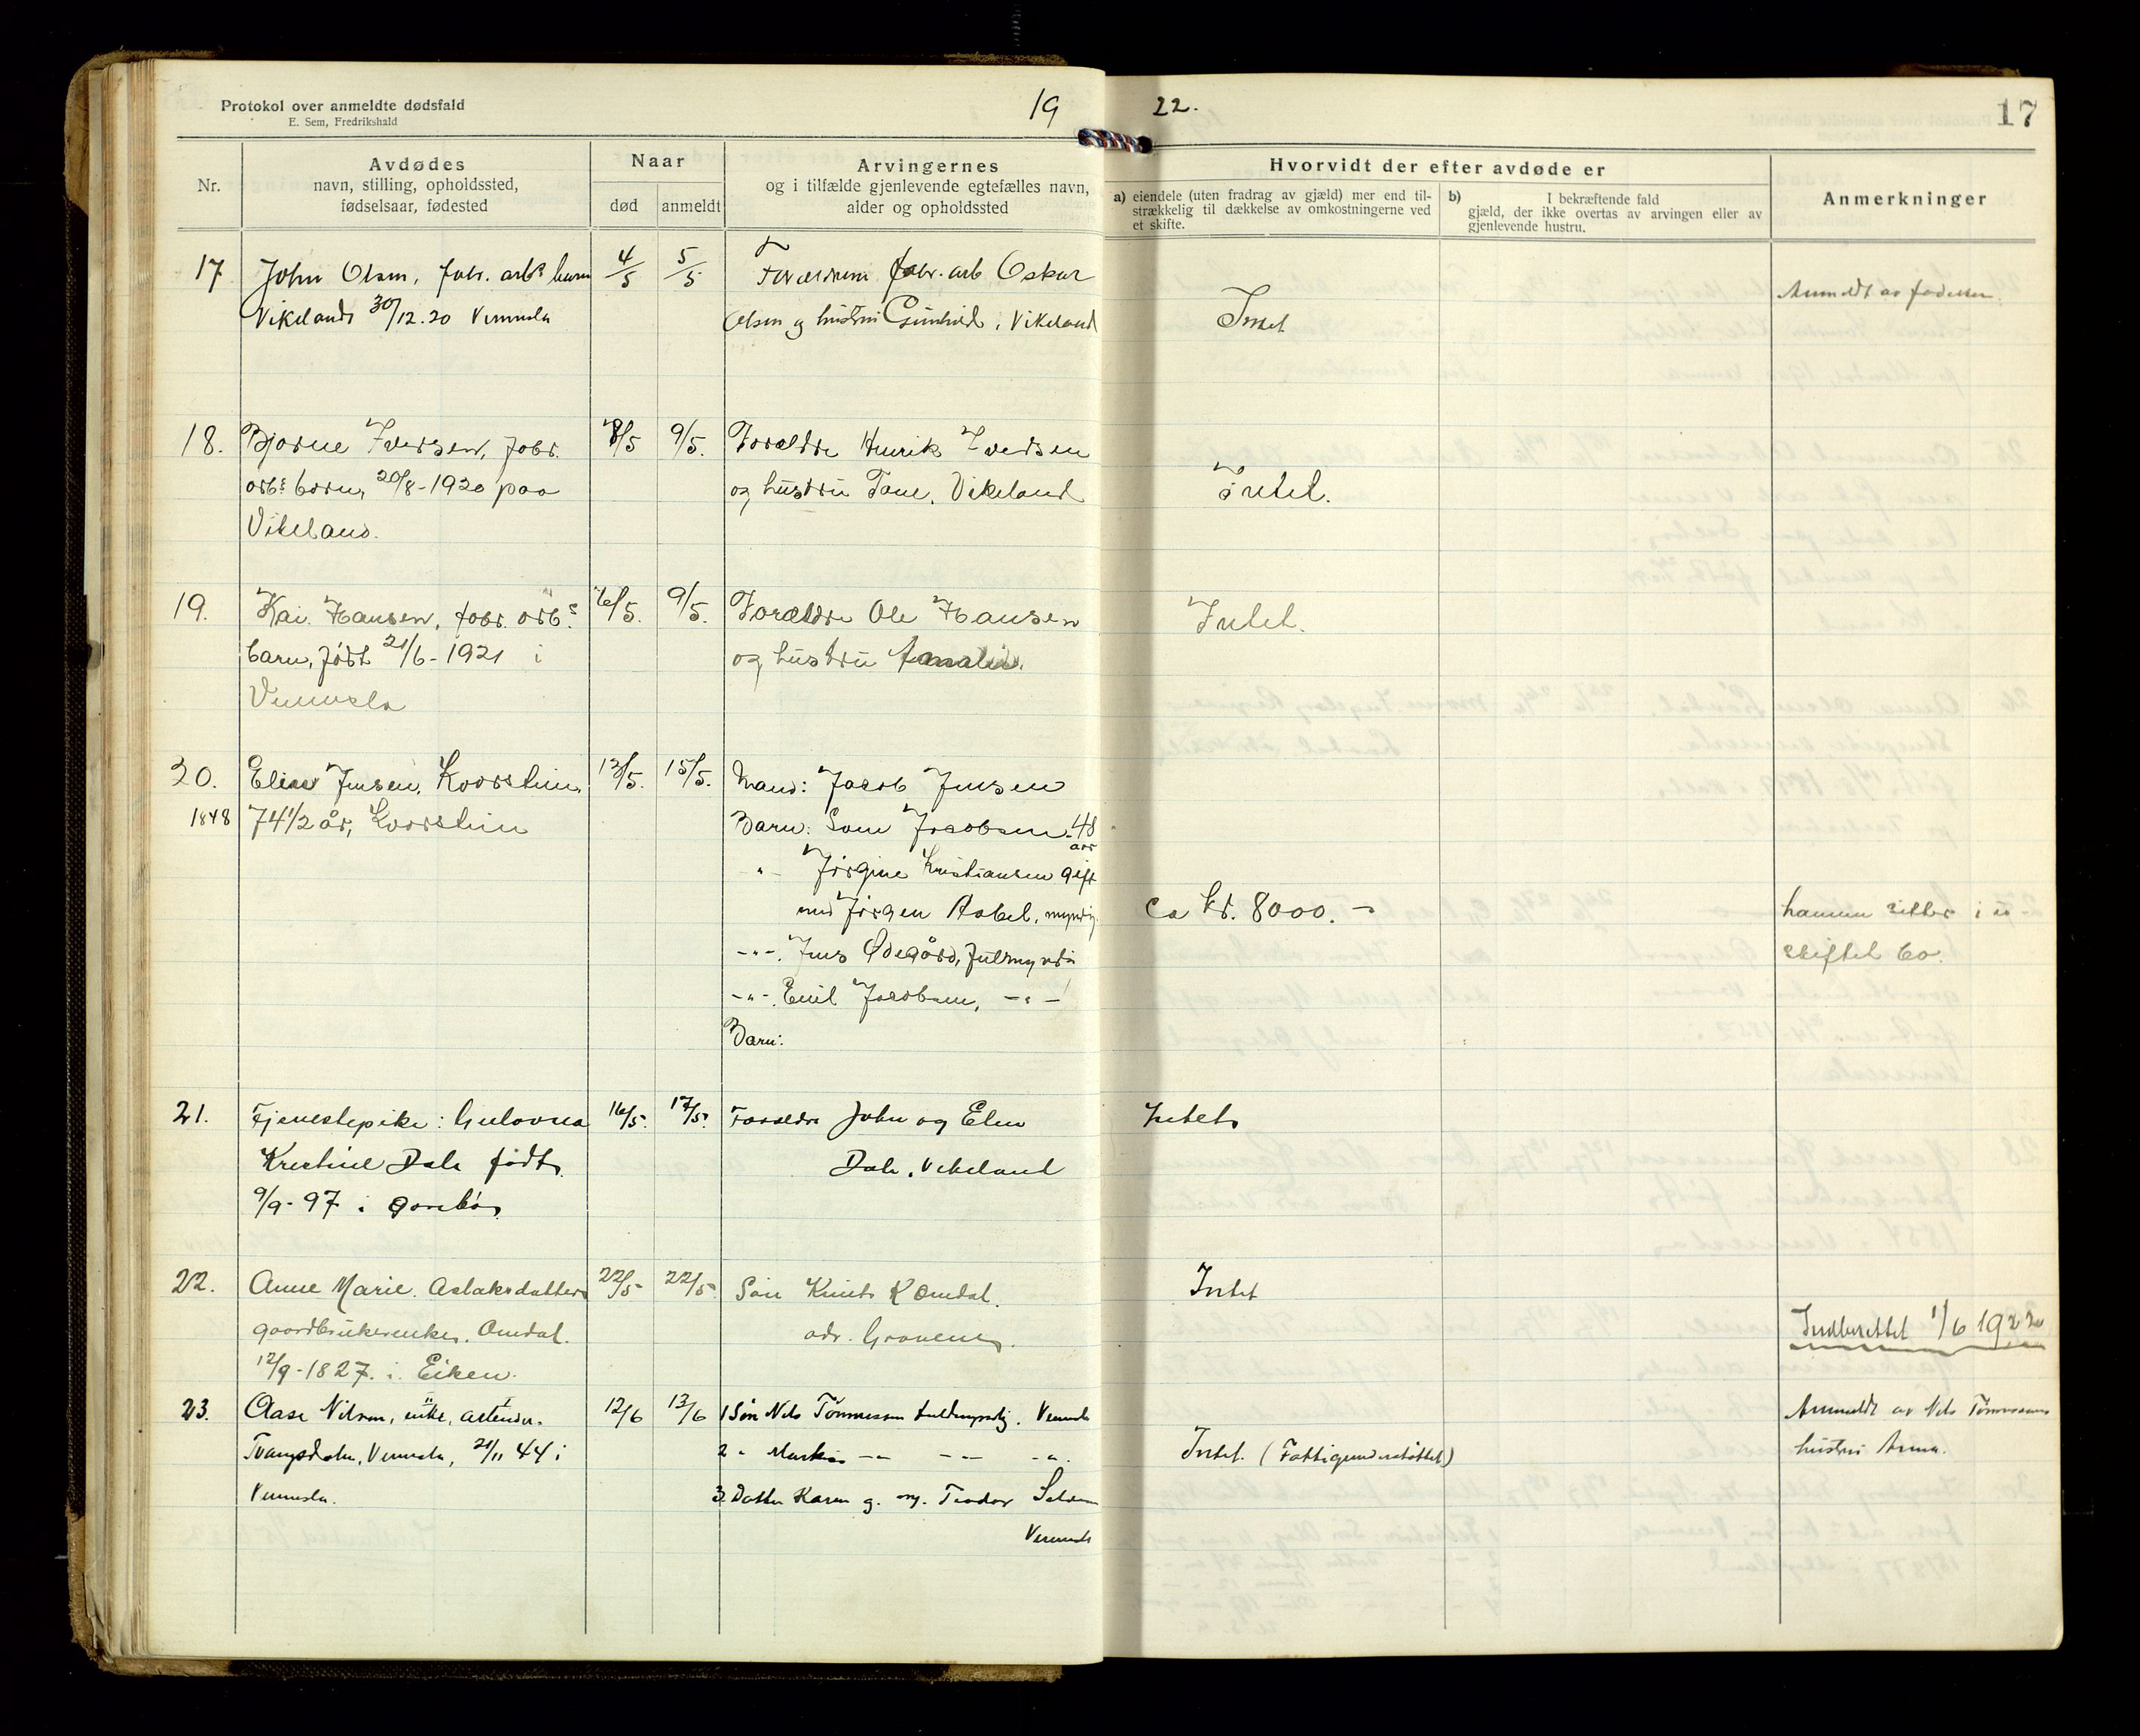 Protokol over anmeldte dødsfald
E. Sem, Fredrikshald
19 22.
17
Nr.
Avdødes
navn, stilling, opholdssted,
fødselsaar, fødested
Naar
død
anmeldt
Arvingernes
og i tilfælde gjenlevende egtefælles navn,
alder og opholdssted
Hvorvidt der efter avdøde er
a) eiendele (uten fradrag av gjæld) mer end til-
strækkelig til dækkelse av omkostningerne ved
et skifte.
b) I bekræftende fald
gjæld, der ikke overtas av arvingen eller av
gjenlevende hustru.
Anmerkninger
17 John Olsen, fabr. arb.s barn
Vikeland 30/12.20 Vennesla
4/5 5/5
Forældrene fabr. arb Oskar
Olsen og hustru Gunhild, Vikeland
Intet
Anmeldt av faderen.
18. Bjarne Iversen, fabr.
arb.s barn, 20/8-1920 paa
Vikeland.
8/5 9/5.
Forældre Henrik Iversen
og hustru Tane, Vikeland
Intet.
19. Kai Hansen, fabr. arb.s
barn, født 21/6-1921 i
Vennesla
6/5. 9/5.
Forældre Ole Hansen
og hustru Amalie.
Intet.
20. Elise Jensen, Kvarstein,
1848 74 1/2 år, Kvarstein
13/5. 15/5.
Mand: Jacob Jensen
Barn: Jacobsen 48
aar
-"- Jørgine Kristiansen gift
med Jørgen Aabel, myndig.
-"-. Jens Ødegård, fuldmyndig
-"-. Emil Jacobsen, -"-
Barn:
ca kr. 8000.-
hannen sitter i u-
skiftet bo.
21. Tjenestepike: Gulovna
Kristine Dale født
9/9-97 i
16/5. 17/5.
Forældre John og Elen
Dale, Vikeland
Intet
22. Anne Marie Aslaksdatter
gaardbrukerenke, Omdal.
12/9-1827. i Eiken.
22/5 22/5
Søn Knut K Omdal.
adr. Grovene.
Intet
Indberettet 1/6 1922
23. Aase Nilsen, enke,
Vennesla, 21/11 44 i
Vennesla.
12/6 13/6
1 Søn Nils Tønnessen fuldmyndig. Vennesla
2 " Markus -"- -"- -"-.
3 Datter Karen g. m. Teodor
Vennesla
Intet. (Fattigunderstøttet)
Anmeldt av Nils Tønnessens
hustru Anna.